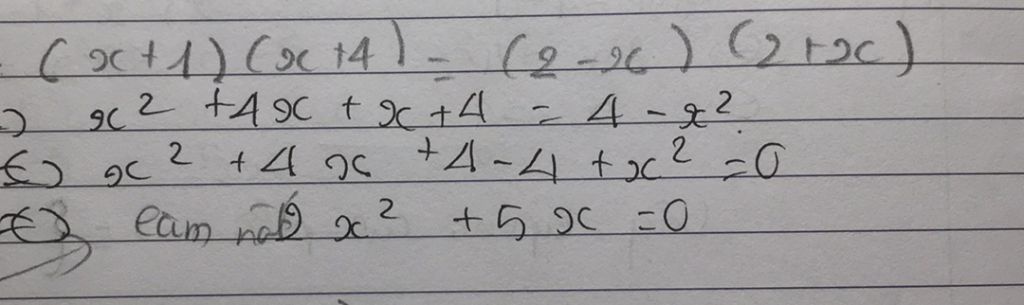 (x+1)(x+4) = (2-x)(2+x)
x² +4x + x+4 = 4 - x²
<=> x² + 4x +4-4 +x² =0
<=> 2x² +5x =0